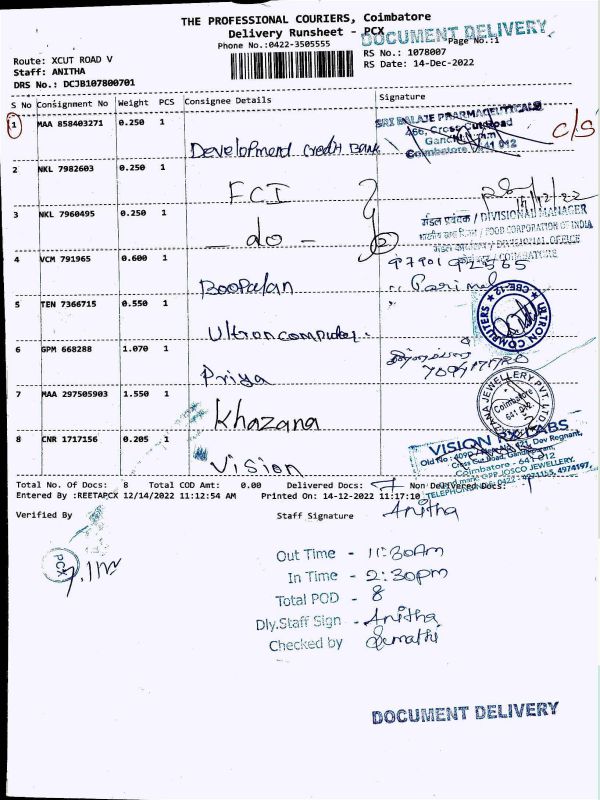 THE PROFESSIONAL COURIERS, Coimbatore
Delivery Runsheet - PCX
DOCUMENT DELIVERY
Phone No.:0422-3505555
Page No.:1
Route: XCUT ROAD V
RS No.: 1078007
Staff: ANITHA
RS Date: 14-Dec-2022
DRS No.: DCJB107800701
S No Consignment No Weight PCS Consignee Details Signature
1 MAA 858403271 0.250 1
Development Credit Bank
SRI BALAJE PHARMACEUTICALS
466, Cross Cut Road
Coimbatore 641 012
C/S
2 NKL 7982603 0.250 1
FCI
3 NKL 7960495 0.250 1
- do -
2
मंडल प्रबंधक / DIVISIONAL MANAGER
भारतीय खाद्य निगम / FOOD CORPORATION OF INDIA
मंडल कार्यालय / DIVISIONAL OFFICE
COIMBATORE
4 VCM 791965 0.600 1
Boopalan
5 TEN 7366715 0.550 1
Ultron computer.
ULTRON COMPUTERS
CBE-12
6 GPM 668288 1.070 1
Priya
7 MAA 297505903 1.550 1
Khazana
JEWELLERY PVT. LTD
Coimbatore
641 012
8 CNR 1717156 0.205 1
Vision
VISION RX LABS
Coimbatore - 641 012
Total No. Of Docs: 8 Total COD Amt: 0.00 Delivered Docs: 7 Non Delivered Docs: 1
Entered By :REETAPCX 12/14/2022 11:12:54 AM Printed On: 14-12-2022 11:17:10
Verified By
Staff Signature Anitha
PCX
Out Time - 11:30Am
In Time - 2:30pm
Total POD - 8
Dly.Staff Sign - Anitha
Checked by Sumathi
DOCUMENT DELIVERY